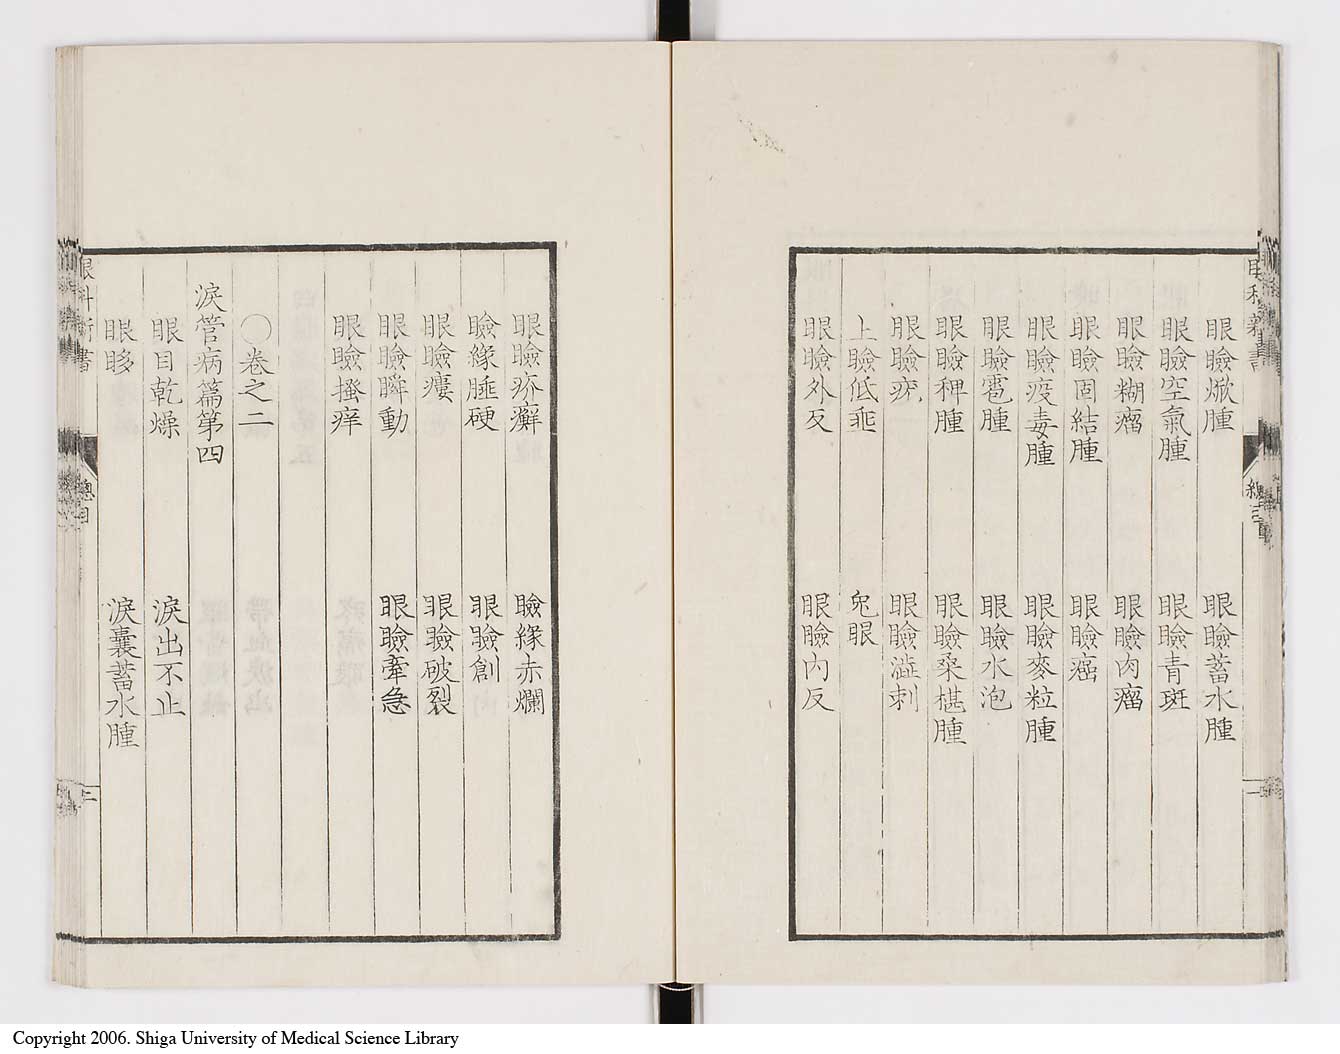 眼瞼焮腫
眼瞼蓄水腫
眼瞼空氣腫
眼瞼青斑
眼瞼糊瘤
眼瞼肉瘤
眼瞼固結腫
眼瞼癌
眼瞼疫毒腫
眼瞼麥粒腫
眼瞼雹腫
眼瞼水泡
眼瞼稗腫
眼瞼桑椹腫
眼瞼疣
眼瞼澁刺
上瞼低垂
兔眼
眼瞼外反
眼瞼內反
眼瞼疥癬
瞼緣赤爛
瞼緣腫硬
眼瞼創
眼瞼瘻
眼瞼破裂
眼瞼瞬動
眼瞼牽急
眼瞼搔痒
〇卷之二
淚管病篇第四
眼目乾燥
淚出不止
眼眵
淚囊蓄水腫
眼科新書
總目
二
Copyright 2006. Shiga University of Medical Science Library